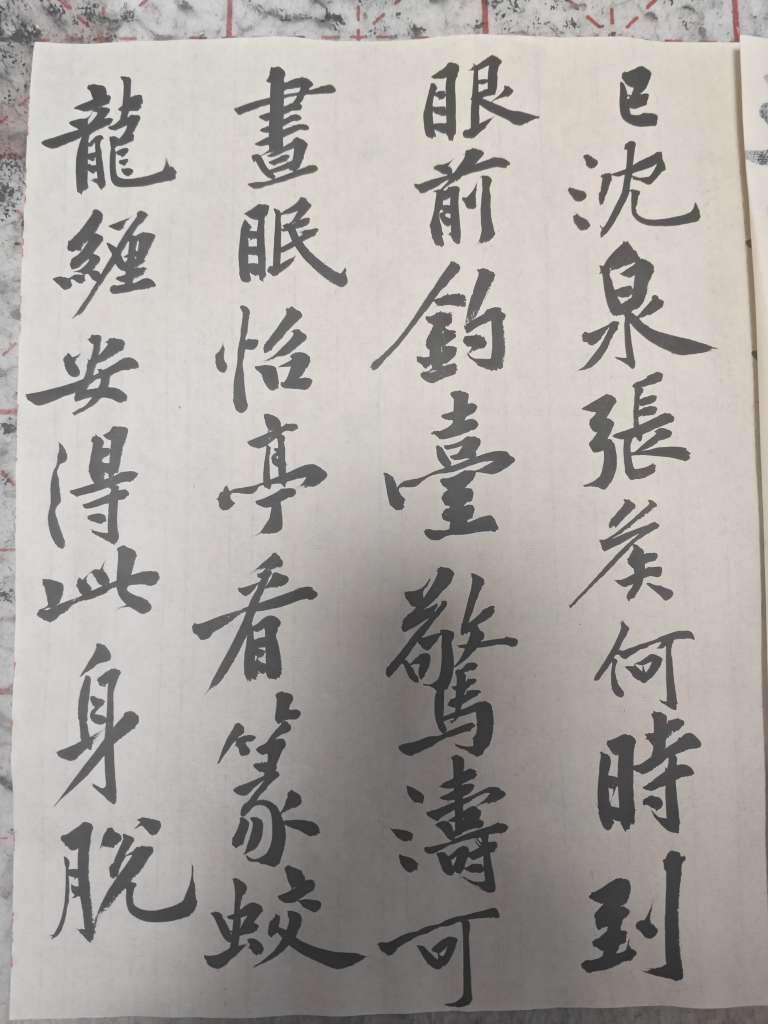 已沈泉張矦何時到
眼前釣臺驚濤可
晝眠怡亭看篆蛟
龍纏安得此身脫